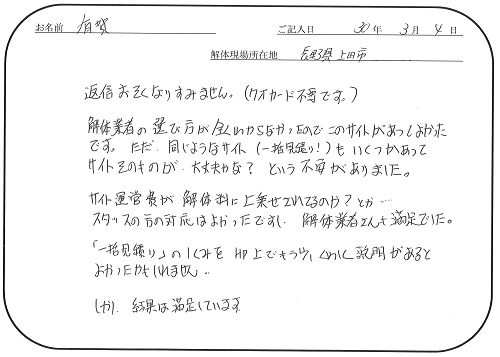 お名前 有賀 ご記入日 30年 3月 4日
解体現場所在地 長野県上田市
返信おそくなりすみません。(クオカード不要です。)
解体業者の選び方が全くわからなかったのでこのサイトがあってよかった
です。ただ、同じようなサイト(一括見積り!)もいくつかあって
サイトそのものが、大丈夫かな?という不安がありました。
サイト運営費が解体料に上乗せされてるのか?とか…
スタッフの方の対応はよかったですし、解体業者さんも満足でした。
「一括見積り」のしくみをHP上でもう少しくわしく説明があると
よかったかもしれません…
しかし、結果は満足しています